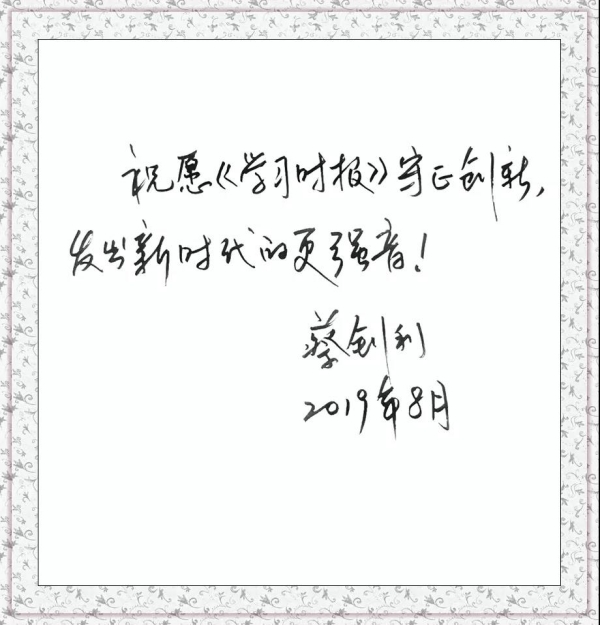 祝愿《学习时报》守正创新，
发出新时代的更强音！
蔡剑利
2019年8月